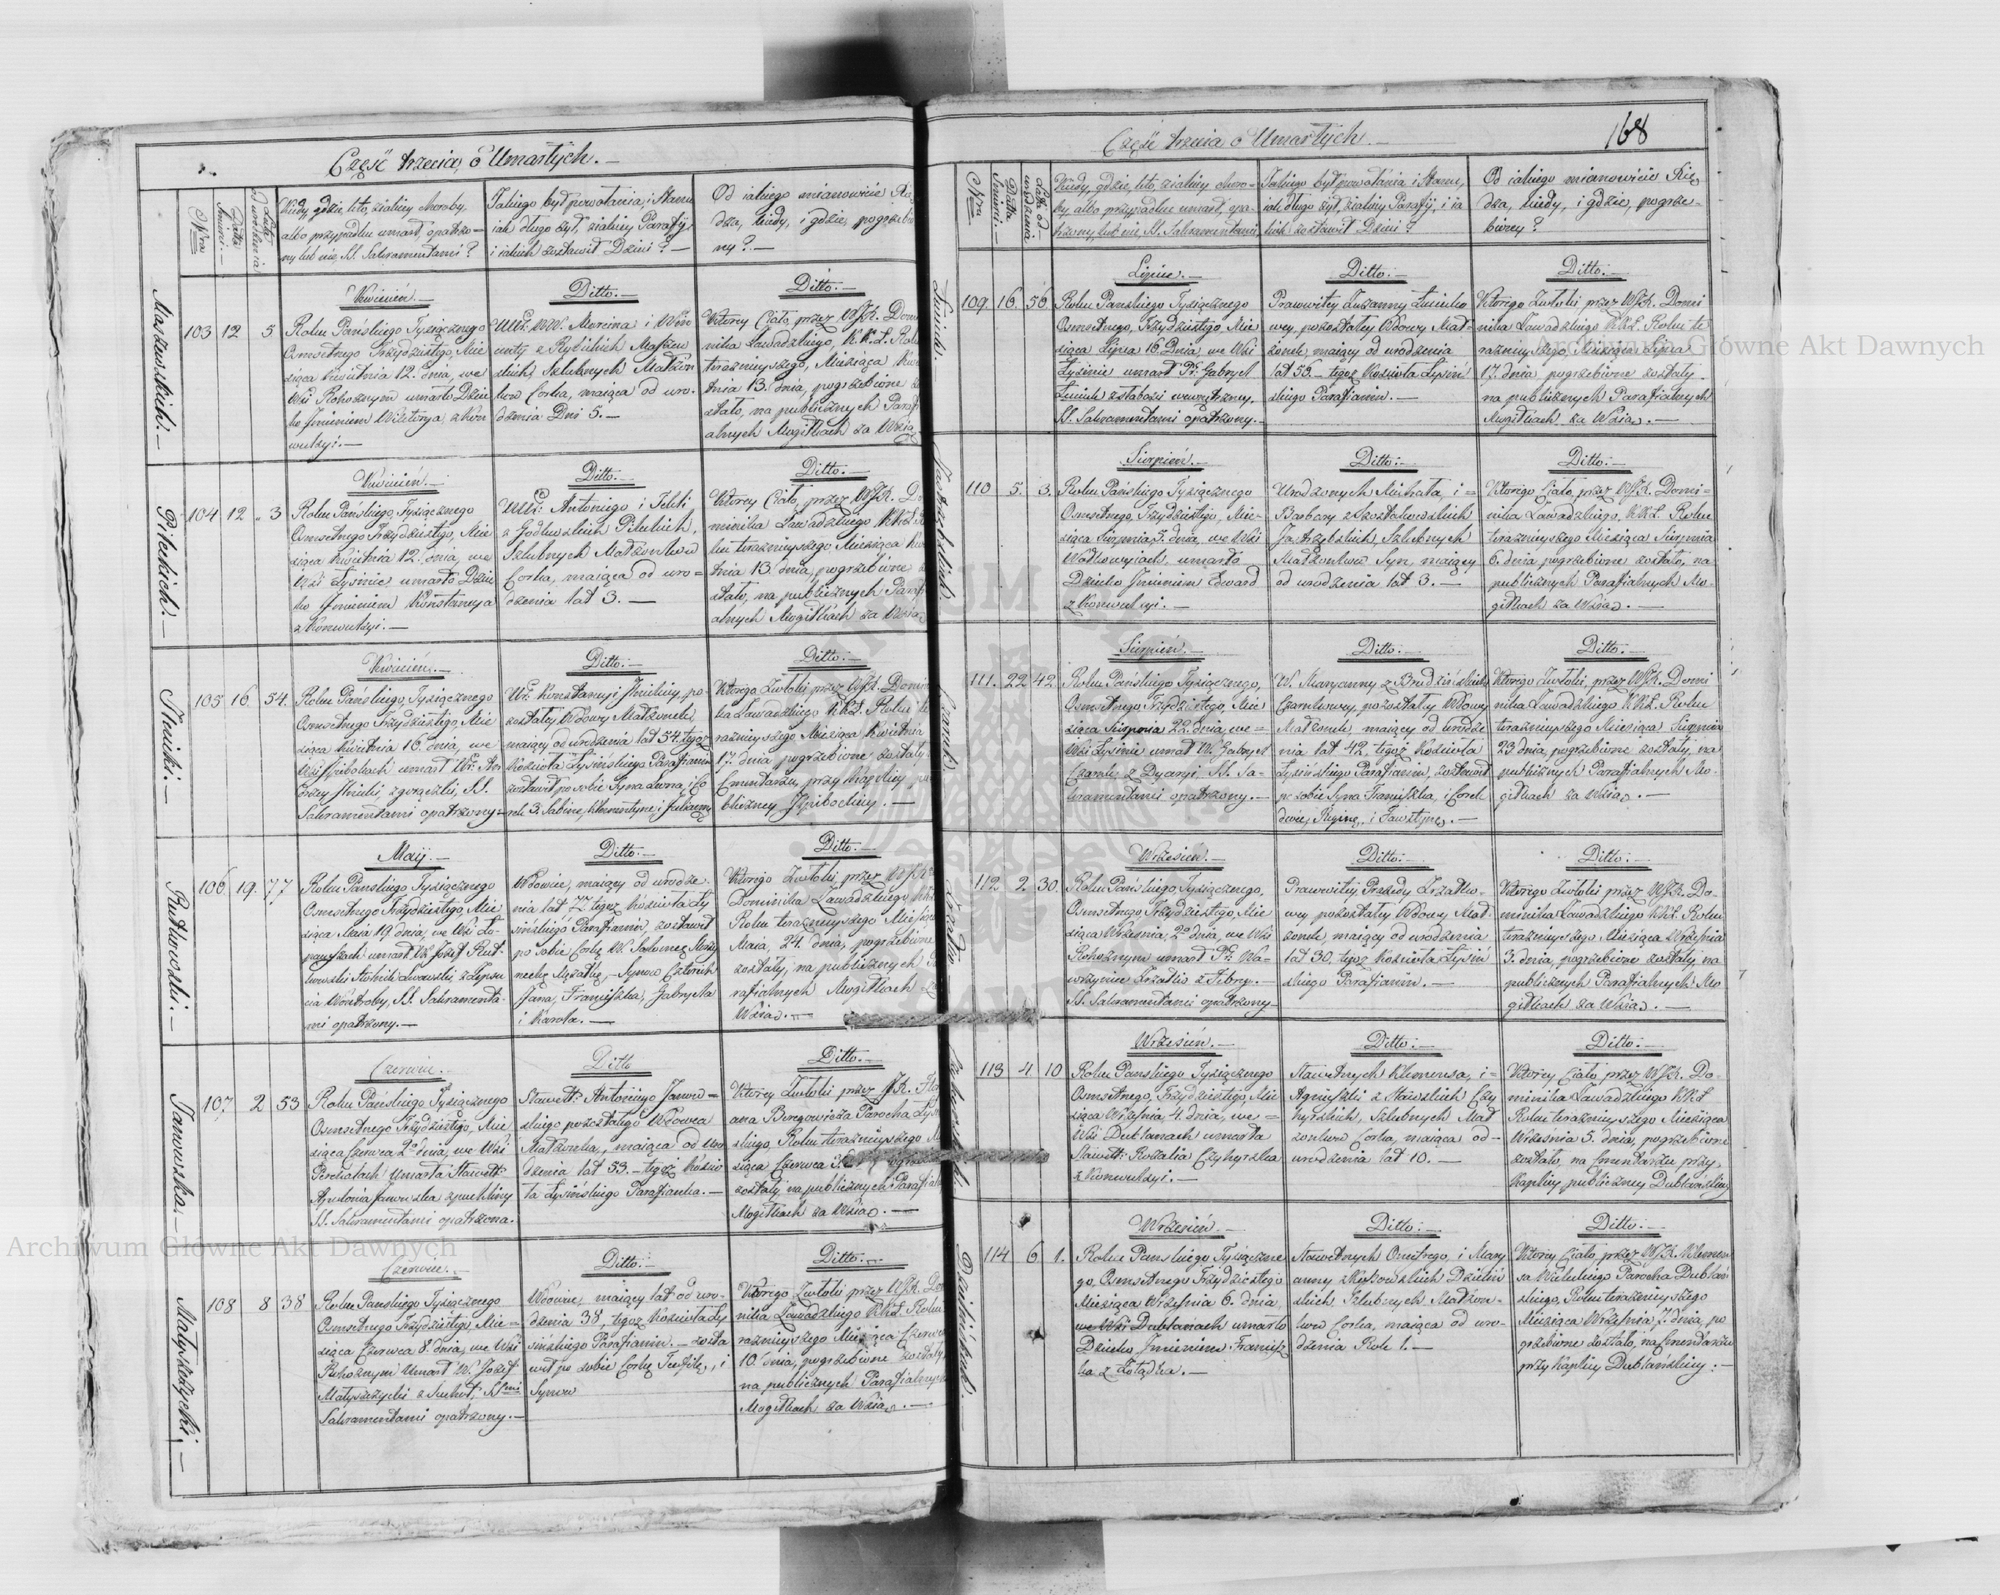 Część trzecia, o Umarłych.—
Nra
Data Śmierci.—
Lata od urodzenia
Kiedy, gdzie, kto, z jakiey choroby,
albo przypadku umarł, opatrzo=
ny lub nie SS. Sakramentami?
Jakiego był powołania, i Stanu
iak długo żył, z iakiey Parafij,
i iakich zostawił Dzieci?—
Od iakiego mianowicie
dza, kiedy, i gdzie, pogrze
ny?—
Maszewskich.—
103 12 5
Kwiecień.—
Roku Pańskiego Tysiącznego
Osmsetnego Trzydziestego, Mie
siąca Kwietnia 12. dnia, we
Wsi Rohoznym umarło Dziec
ko Jmieniem Wiktorya z kon
wulsyi.—
Ditto.—
Marcina i Win
centy z Rybickich Maszew
skich, Szlubnych Małżon
ków Corka, maiąca od uro
dzenia Dni 5.—
Ditto.—
Ktorey Ciało, przez WJX. Dom
nika Zawadzkiego, K.K.Ł. Rok
teraznieyszego, Miesiąca Kwie
tnia 13. dnia, pogrzebione
stało, na publicznych Paraf
alnych Mogiłkach za Wsią
Pileckich.—
104 12 3
Kwiecień.—
Roku Pańskiego, Tysiącznego
Osmsetnego Trzydziestego, Mie
siąca Kwietnia 12. dnia, we
Wsi Łysinie umarło Dziec
ko Jmieniem Konstancya
z Konwulsyi.—
Ditto.—
Antoniego i Tekli
z Godlewskich Pileckich,
Szlubnych Małżonkow
Corka, maiąca od uro=
dzenia lat 3.—
Ditto.—
Ktorey Ciało, przez WJX. Do
minika Zawadzkiego K.K.Ł.
ku teraznieyszego Miesiąca Kwie
tnia 13 dnia, pogrzebione
stało, na publicznych Paraf
alnych Mogiłkach za Wsią
105 16 54.
Kwiecień.—
Roku Pańskiego, Tysiącznego
Osmsetnego Trzydziestego, Mie
siąca Kwietnia 16. dnia, we
umarł
z gorączki, SS.
Sakramentami opatrzony.—
Ditto.—
Konstancyi po
zostały Wdowy Małżonek
maiący od urodzenia lat 54. tegoz
Kościoła Łysińskiego Parafianin
zostawił po sobie Syna i Co
rek 3. Sabinę, Klementynę, i Juliannę
Ditto.—
Ktorego Zwłoki przez WJX. Domin
ka Zawadzkiego KKŁ. Roku te
raznieyszego, Miesiąca Kwietnia
17. dnia pogrzebione zostały
Cmentarzu, przy kaplicy pu
bliczney
Rutkowski.—
106 19. 77
Maij.—
Roku Pańskiego Tysiącznego
Osmsetnego Trzydziestego, Mie
siąca Maia 19. dnia, we Wsi
umarł W. Józef Rut
kowski
cia Wątroby, SS. Sakramenta
mi opatrzony.—
Ditto.—
Wdowiec, maiący od urodze
nia lat 77. tegoz Kościoła Ły
sińskiego Parafianin, zostawił
po sobie Corkę W. Salomeę
Mężatkę,—Synow Czterech
Jana, Franciszka, Gabryela
i Karola.—
Ditto.—
Ktorego Zwłoki, przez WJX.
Dominika Zawadzkiego KKŁ.
Roku teraznieyszego Miesiąca
Maia, 24. dnia, pogrzebione
zostały, na publicznych Pa
rafialnych Mogiłkach za
Wsią.—
107. 2 53
Czerwiec.—
Roku Pańskiego Tysiącznego
Osmsetnego Trzydziestego, Mie
siąca Czerwca 2o dnia, we Wsi
Umarła
z puchliny
SS. Sakramentami opatrzona.
Ditto
Antoniego
skiego pozostałego Wdowca
Małżonka, maiąca od uro
dzenia lat 53.—tegoz Kościo
ła Łysińskiego Parafianka.—
Ditto.—
Ktorey Zwłoki przez
Parocha Łysiń
skiego, Roku teraznieyszego Mie
siąca Czerwca
zostały na publicznych Parafial
Mogiłkach za Wsią.—
108 8 38
Czerwiec.—
Roku Pańskiego Tysiącznego
Osmsetnego Trzydziestego, Mie=
siąca Czerwca 8. dnia, we Wsi
Rohoznym Umarł W. Józef
z Suchot,
Sakramentami opatrzony.—
Ditto.—
Wdowiec, maiący lat od uro
dzenia 38, tegoz Kościoła Ły
sińskiego Parafianin.— zosta
wił po sobie Corkę i
Synow
Ditto.—
Ktorego Zwłoki przez WJX. Do
nika Zawadzkiego KKŁ. Roku
raznieyszego Miesiąca Czerwca
10. dnia, pogrzebione zostały
na publicznych Parafialnych
Mogiłkach za Wsią.—
168
Część trzecia o Umarłych.—
Nra
Data Śmierci.—
Lata od urodzenia
Kiedy, gdzie, kto, z iakiey choro=
by, albo przypadku umarł, opa=
trzony, lub nie, SS. Sakramentami
Jakiego był powołania i Stanu,
iak długo żył, z iakiey Parafij, i ia
kich zostawił Dzieci?
Od iakiego mianowicie Xię
dza, kiedy, i gdzie, pogrze=
biony?
109. 16. 56.
Lipiec.—
Roku Pańskiego Tysiącznego
Osmsetnego, Trzydziestego, Mie
siąca Lipca 16. Dnia, we Wsi
Łysinie umarł Gabryel
z słabości wewnętrzney,
SS. Sakramentami opatrzony.—
Ditto.—
Prawowitey Zuzanny
wey, pozostałey Wdowy Mał=
żonek, maiący od urodzenia
lat 53.—tegoz Kościoła Łysiń
skiego Parafianin.—
Ditto.—
Ktorego Zwłoki przez WJX. Domi
nika Zawadzkiego KKŁ. Roku te
raznieyszego, Miesiąca Lipca
17. dnia pogrzebione zostały
na publicznych Parafialnych
Mogiłkach za Wsią.—
110 5. 3.
Sierpień.—
Roku Pańskiego Tysiącznego
Osmsetnego, Trzydziestego, Mie=
siąca Sierpnia 5. dnia, we Wsi
umarło
Dziecko Jmieniem Edward
z Konwulsyi.—
Ditto.—
Urodzonych Michała, i=
Barbary z
Szlubnych
Małżonkow Syn, maiący
od urodzenia lat 3.—
Ditto.—
Ktorego Ciało przez WJX. Domi=
nika Zawadzkiego, KKŁ. Roku
teraznieyszego Miesiąca Sierpnia
6. dnia, pogrzebione zostało, na
publicznych Parafialnych Mo=
giłkach za Wsią.—
111. 22 42.
Sierpień.—
Roku Pańskiego Tysiącznego,
Osmsetnego Trzydziestego, Mie
siąca Sierpnia 22. dnia, we=
Wsi Łysinie umarł W. Gabryel
Czarnek z Dyaryi, SS. Sa=
kramentami opatrzony.—
Ditto.—
W. Maryanny z
Czarnkowey, pozostałey Wdowy
Małżonek maiący od urodze
nia lat 42. tegoż Kościoła
Łysińskiego Parafianin, zostawił
po sobie Syna Franciszka, i Corek
dwie, Reginę, i Faustynę.—
Ditto.—
Ktorego Zwłoki, przez WJX. Domi
nika Zawadzkiego KKŁ. Roku
teraznieyszego Miesiąca Sierpnia
23 dnia, pogrzebione zostały, na
publicznych Parafialnych Mo=
giłkach za Wsią.—
112 2. 30.
Wrzesień.—
Roku Pańskiego Tysiącznego,
Osmsetnego Trzydziestego, Mie
siąca Września, 2o dnia, we Wsi
Rohoznym umarł Wa=
wrzyniec z Febry.—
SS. Sakramentami opatrzony.—
Ditto.—
Prawowitey
wey pozostałey Wdowy Mał=
żonek, maiący od urodzenia
lat 30. tegoz Kościoła Łysiń
skiego Parafianin.—
Ditto.—
Ktorego Zwłoki, przez WJX. Do=
minika Zawadzkiego KKŁ. Roku
teraznieyszego Miesiąca Września
3. dnia, pogrzebione zostały na
publicznych Parafialnych Mo
giłkach za Wsią.—
113 4. 10
Wrzesień.—
Roku Pańskiego Tysiącznego
Osmsetnego, Trzydziestego, Mie
siąca Września, 4. dnia, we=
Wsi Dublanach umarła
Rozalia
z Konwulsyi.—
Ditto:—
Sławetnych Klemensa, i=
Agnieszki z
Szlubnych Mał
żonkow Corka, maiąca od=
urodzenia lat 10.—
Ditto:—
Ktorey Ciało, przez WJX. Do=
minika Zawadzkiego KKŁ
Roku teraznieyszego Miesiąca
Września 5. dnia, pogrzebione
zostało, na Cmentarzu przy
Kaplicy publiczney Dublańskiey.
114 6. 1.
Wrzesień.—
Roku Pańskiego Tysiączne
go, Osmsetnego Trzydziestego
Miesiąca Września 6. dnia
we Wsi Dublanach umarło
Dziecko Jmieniem Francisz
ka z Żołądka.—
Ditto:—
Sławetnych Onufrego, i Mary
anny
skich Szlubnych Małżon=
kow Corka, maiąca od uro=
dzenia Rok 1.—
Ditto:—
Ktorey Ciało, przez WJX. Klemen
sa Parocha Dublań
skiego, Roku teraznieyszego
Miesiąca Września 7. dnia, po
grzebione zostało, na Cmentarzu
przy Kaplicy Dublańskiey.—
Archiwum Główne Akt Dawnych
Archiwum Główne Akt Dawnych